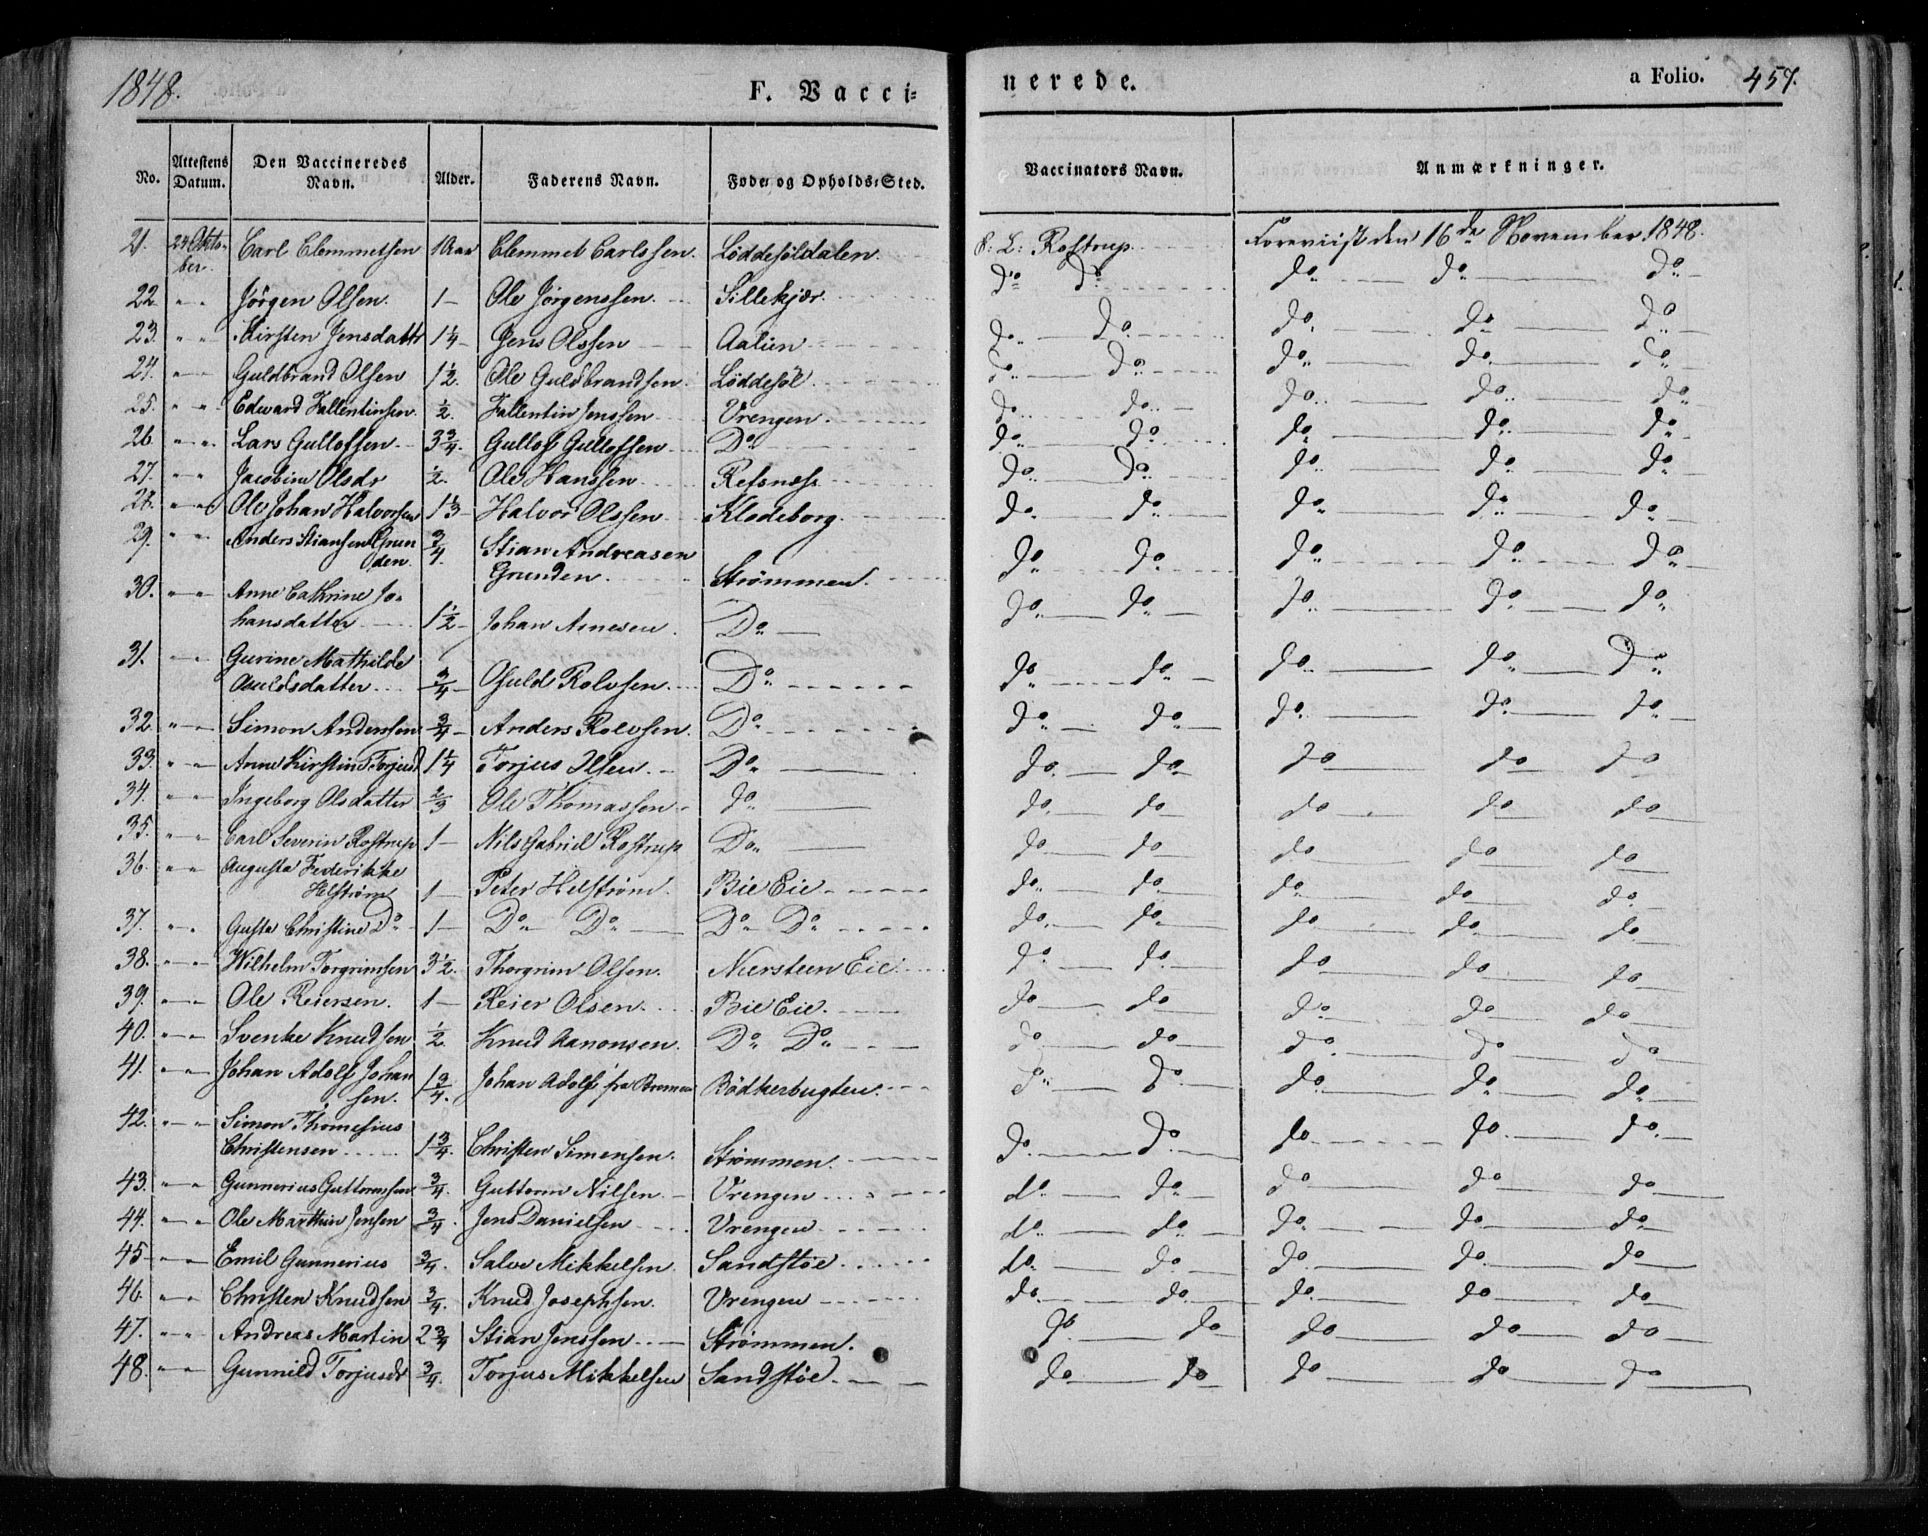 1848.
F. Vacci=
nerede.
a Folio. 457.
No. | Attestens Datum. | Den Vaccineredes Navn. | Alder. | Faderens Navn. | Føde- og Opholds-Sted. | Vaccinators Navn. | Anmærkninger.
21. 24 Okto- Carl Clemmetsen 1 Aar Clemmet Carlssen. Løddesøldalen L: Rostrup Foreviist den 16de November 1848.
ber.
22. " " Jørgen Olsen. 1 – Ole Jørgenssen. Sillekjær. do do do do do
23. " " Kirsten Jensdattr 1¼ – Jens Olssen Aalien do do do do do
24. " " Guldbrand Olsen 1½. Ole Guldbrandsen. Løddesøl. do do do do do
25. " " Edward Fallentinsen ½. Fallentin Jenssen Vrengen. do do do do do
26. " " Lars Gullofsen 3¾. Gullof Gullofssen Do do do do do do
27. " " Jacobine Olsdr ½. Ole Hanssen Refsnes do do do do do
28. " " Ole Johan Halvorsen 1⅓ Halvor Olssen Klodeborg. do do do do do
29. " " Anders Stiansen Grun ¾. Stian Andreasen
den. Grunden. Strømmen. do do do do do
30. " " Anne Cathrine Jo-
hansdatter 1½ – Johan Arnesen. Do do do do do do
31. " Gurine Mathilde
Osuldsdatter ¾ – Osuld Rolvsen. Do do do do do do
32. " " Simon Anderssen ¾ – Anders Rolvsen. Do do do do do do
33. " " Anne Kirstine Torjusd 1¼ Torjus Olsen. Do do do do do do
34. " " Ingeborg Olsdatter ⅔ Ole Thomassen. do do do do do do
35. " " Carl Severin Rostrup 1 – Nils Gabriel Rostrup Do do do do do do
36. " " Augusta Federikke
Helstrøm 1 – Peter Helstrøm. Bie Eie do do do do do
37. " " Gusta Christine Do 1 – Do Do Do Do do do do do do
38. " " Wilhelm Torgrimsen 3½. Thorgrim Olsen. Niersteen Eie. do do do do do
39. " " Ole Reiersen. 1 – Reier Olsen. Bie Eie. do do do do do
40. " " Svenke Knudsen ½. Knud Aanonsen. Do Do do do do do do
41. " " Johan Adolf Johan
sen. 1¾. Johan Adolf fra Bremen Bödkerbugten. do do do do do
42. " " Simon Thomesius
Christensen 1¾. Christen Simensen. Strømmen. do do do do do
43. " " Gunnerius Guttormsen ¾. Guttorm Nilsen. Vrengen do do do do do
44. " " Ole Marthin Jensen ¾. Jens Danielsen Vrengen do do do do do
45 " " Emil Gunnerius ¾. Salve Mikkelsen. Sandstøe. do do do do do
46. " " Christen Knudsen ¾. Knud Josephsen. Vrengen do do do do do
47. " " Andreas Martin 2¾ Stian Jenssen Strømmen. do do do do do
48. " " Gunnild Torjusdr ¾. Torjus Mikkelsen Sandstøe. do do do do do